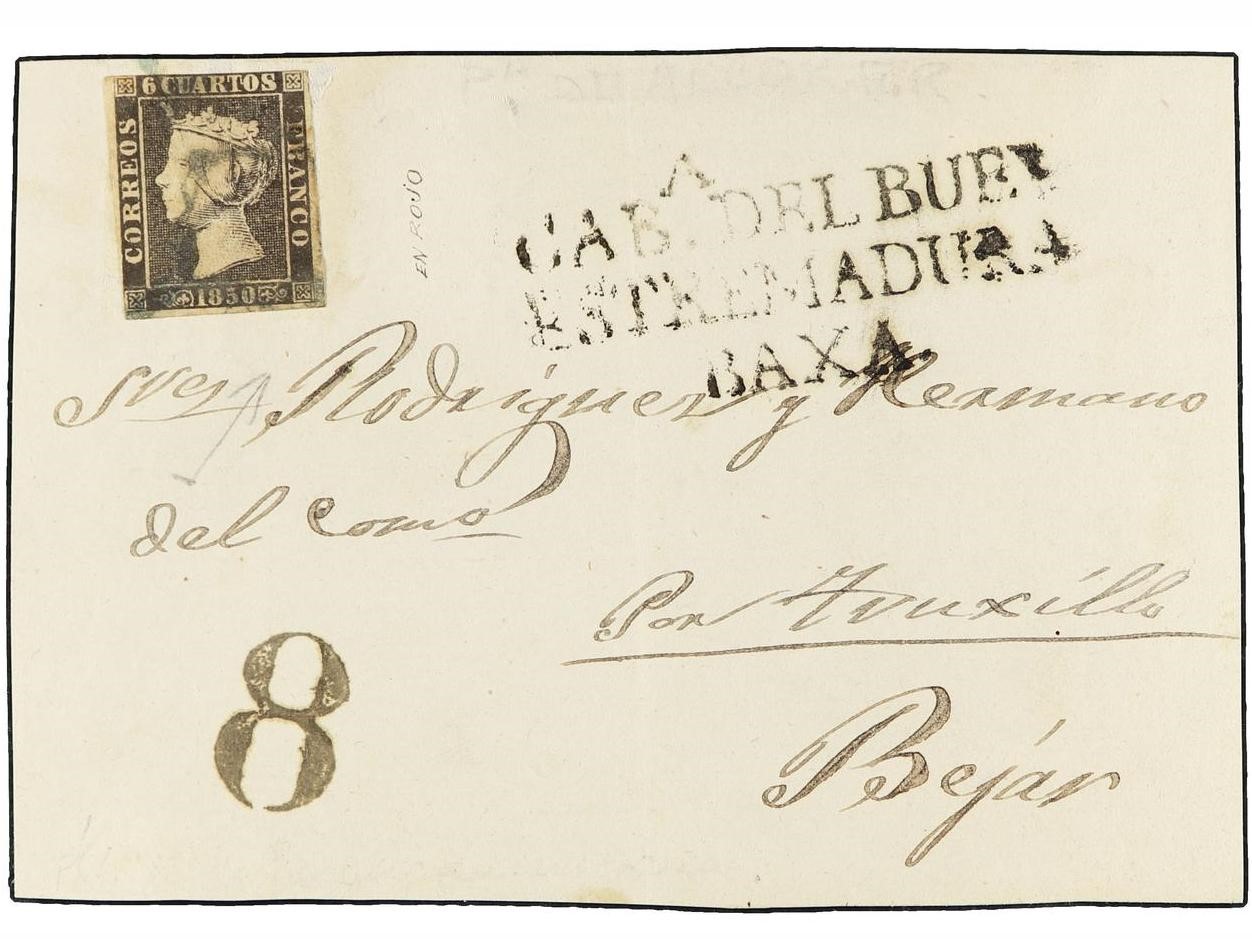 6 CUARTOS
CORREOS
FRANCO
1850
EN ROJO
A
CAB. DEL BUEY
ESTREMADURA
BAXA
Sres Rodriguez y Hermano
del Como
Por Truxillo
Bejár
8